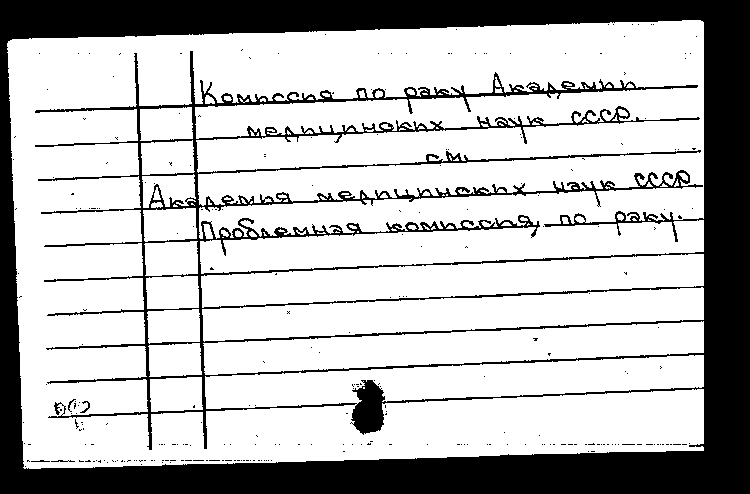 Комиссия по раку Академии
медицинских наук СССР.
см.
Академия медицинских наук СССР.
Проблемная комиссия по раку.